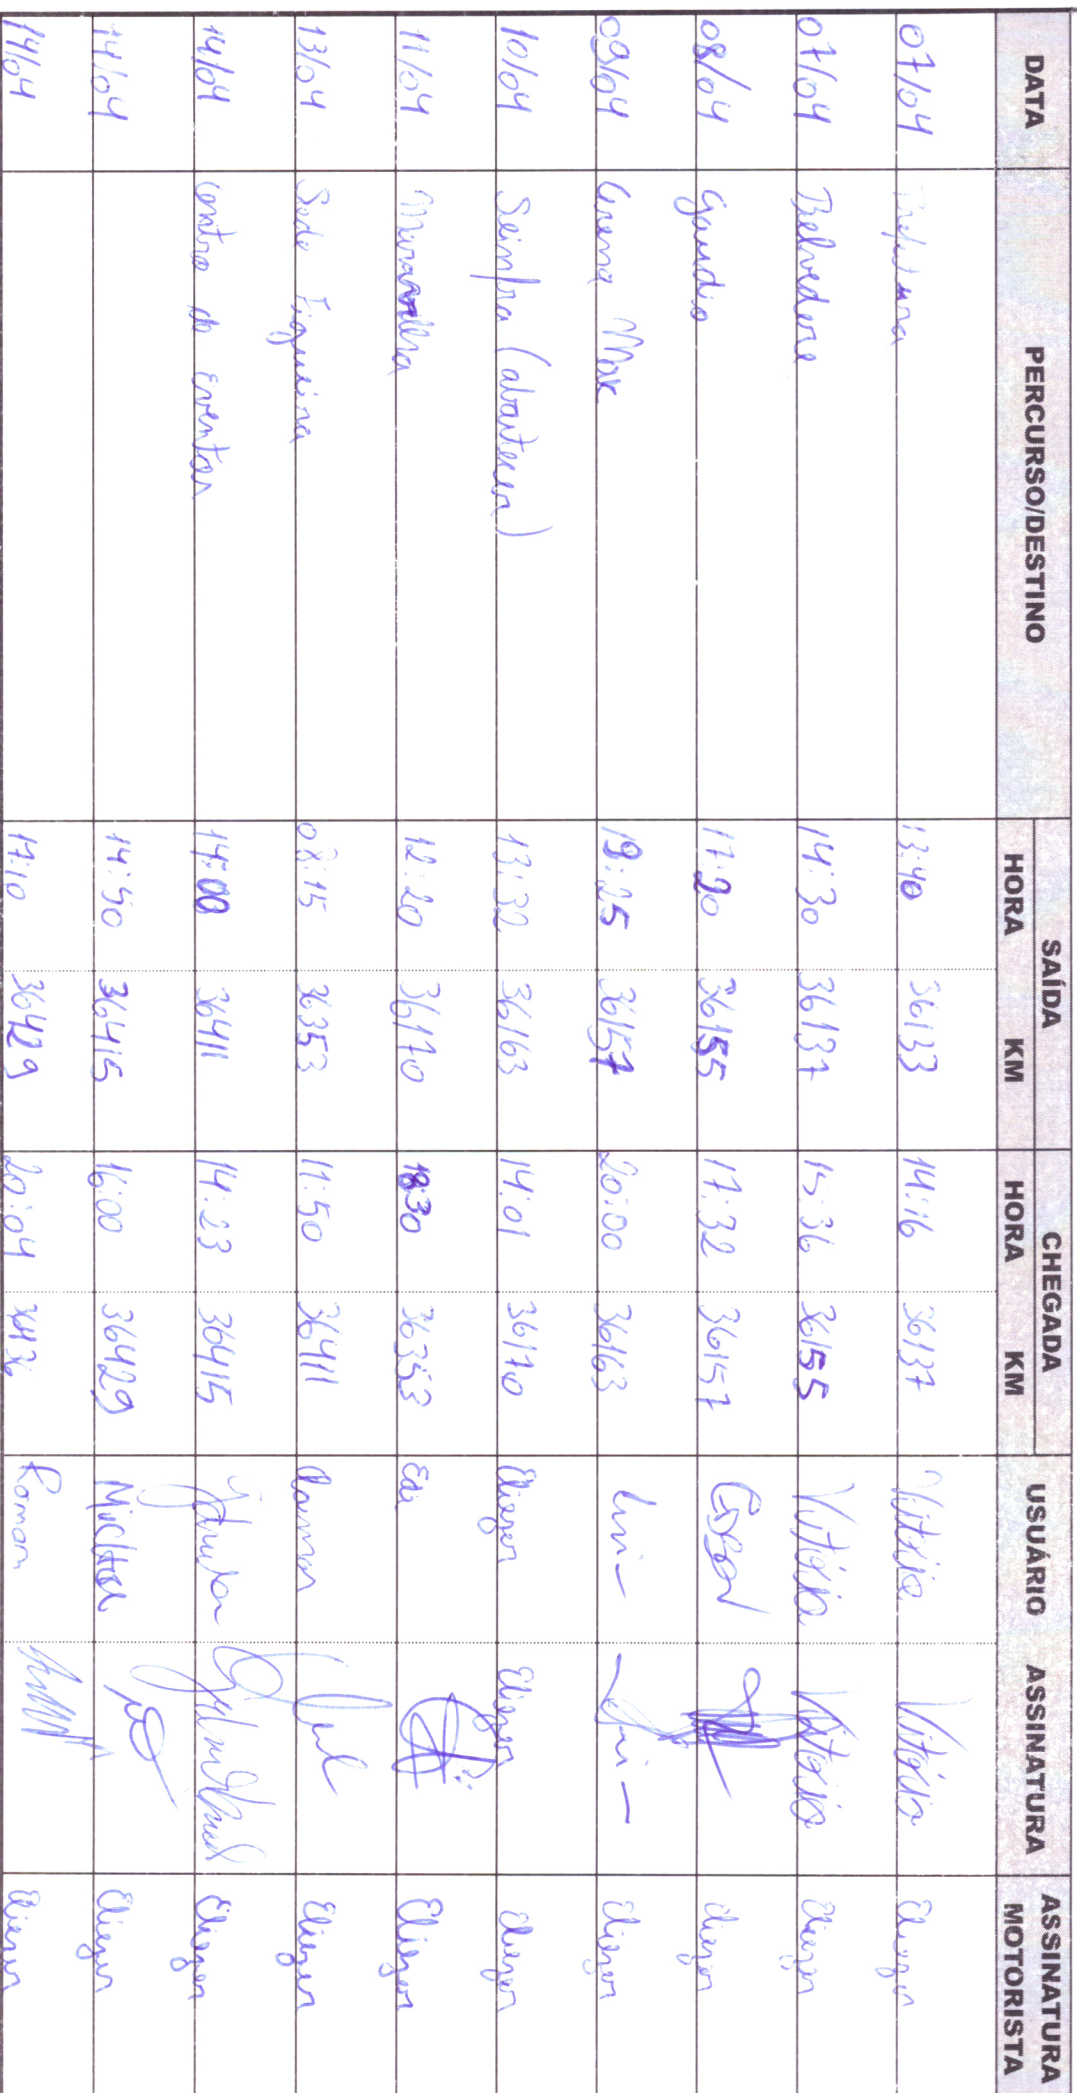 DATA PERCURSO/DESTINO SAÍDA CHEGADA USUÁRIO ASSINATURA ASSINATURA MOTORISTA
HORA KM HORA KM
07/04 Prefeitura 13:40 36133 14:16 36137 Vitória Vitória Eliezer
07/04 Belvedere 14:30 36137 15:36 36155 Vitória Vitória Eliezer
08/04 Gaudio 17:20 36155 17:32 36157 Eliezer
09/04 Arena Max 19:25 36157 20:00 36163 Eliezer
10/04 Seinfra (abastecer) 13:32 36163 14:01 36170 Eliezer Eliezer Eliezer
11/04 Maravilha 12:20 36170 18:30 36353 Edi Eliezer
13/04 Sede Figueira 08:15 36353 11:50 36411 Eliezer
14/04 Centro de eventos 14:00 36411 14:23 36415 Eliezer
14/04 14:50 36415 16:00 36429 Michael Eliezer
14/04 17:10 36429 20:04 36436 Roman Eliezer